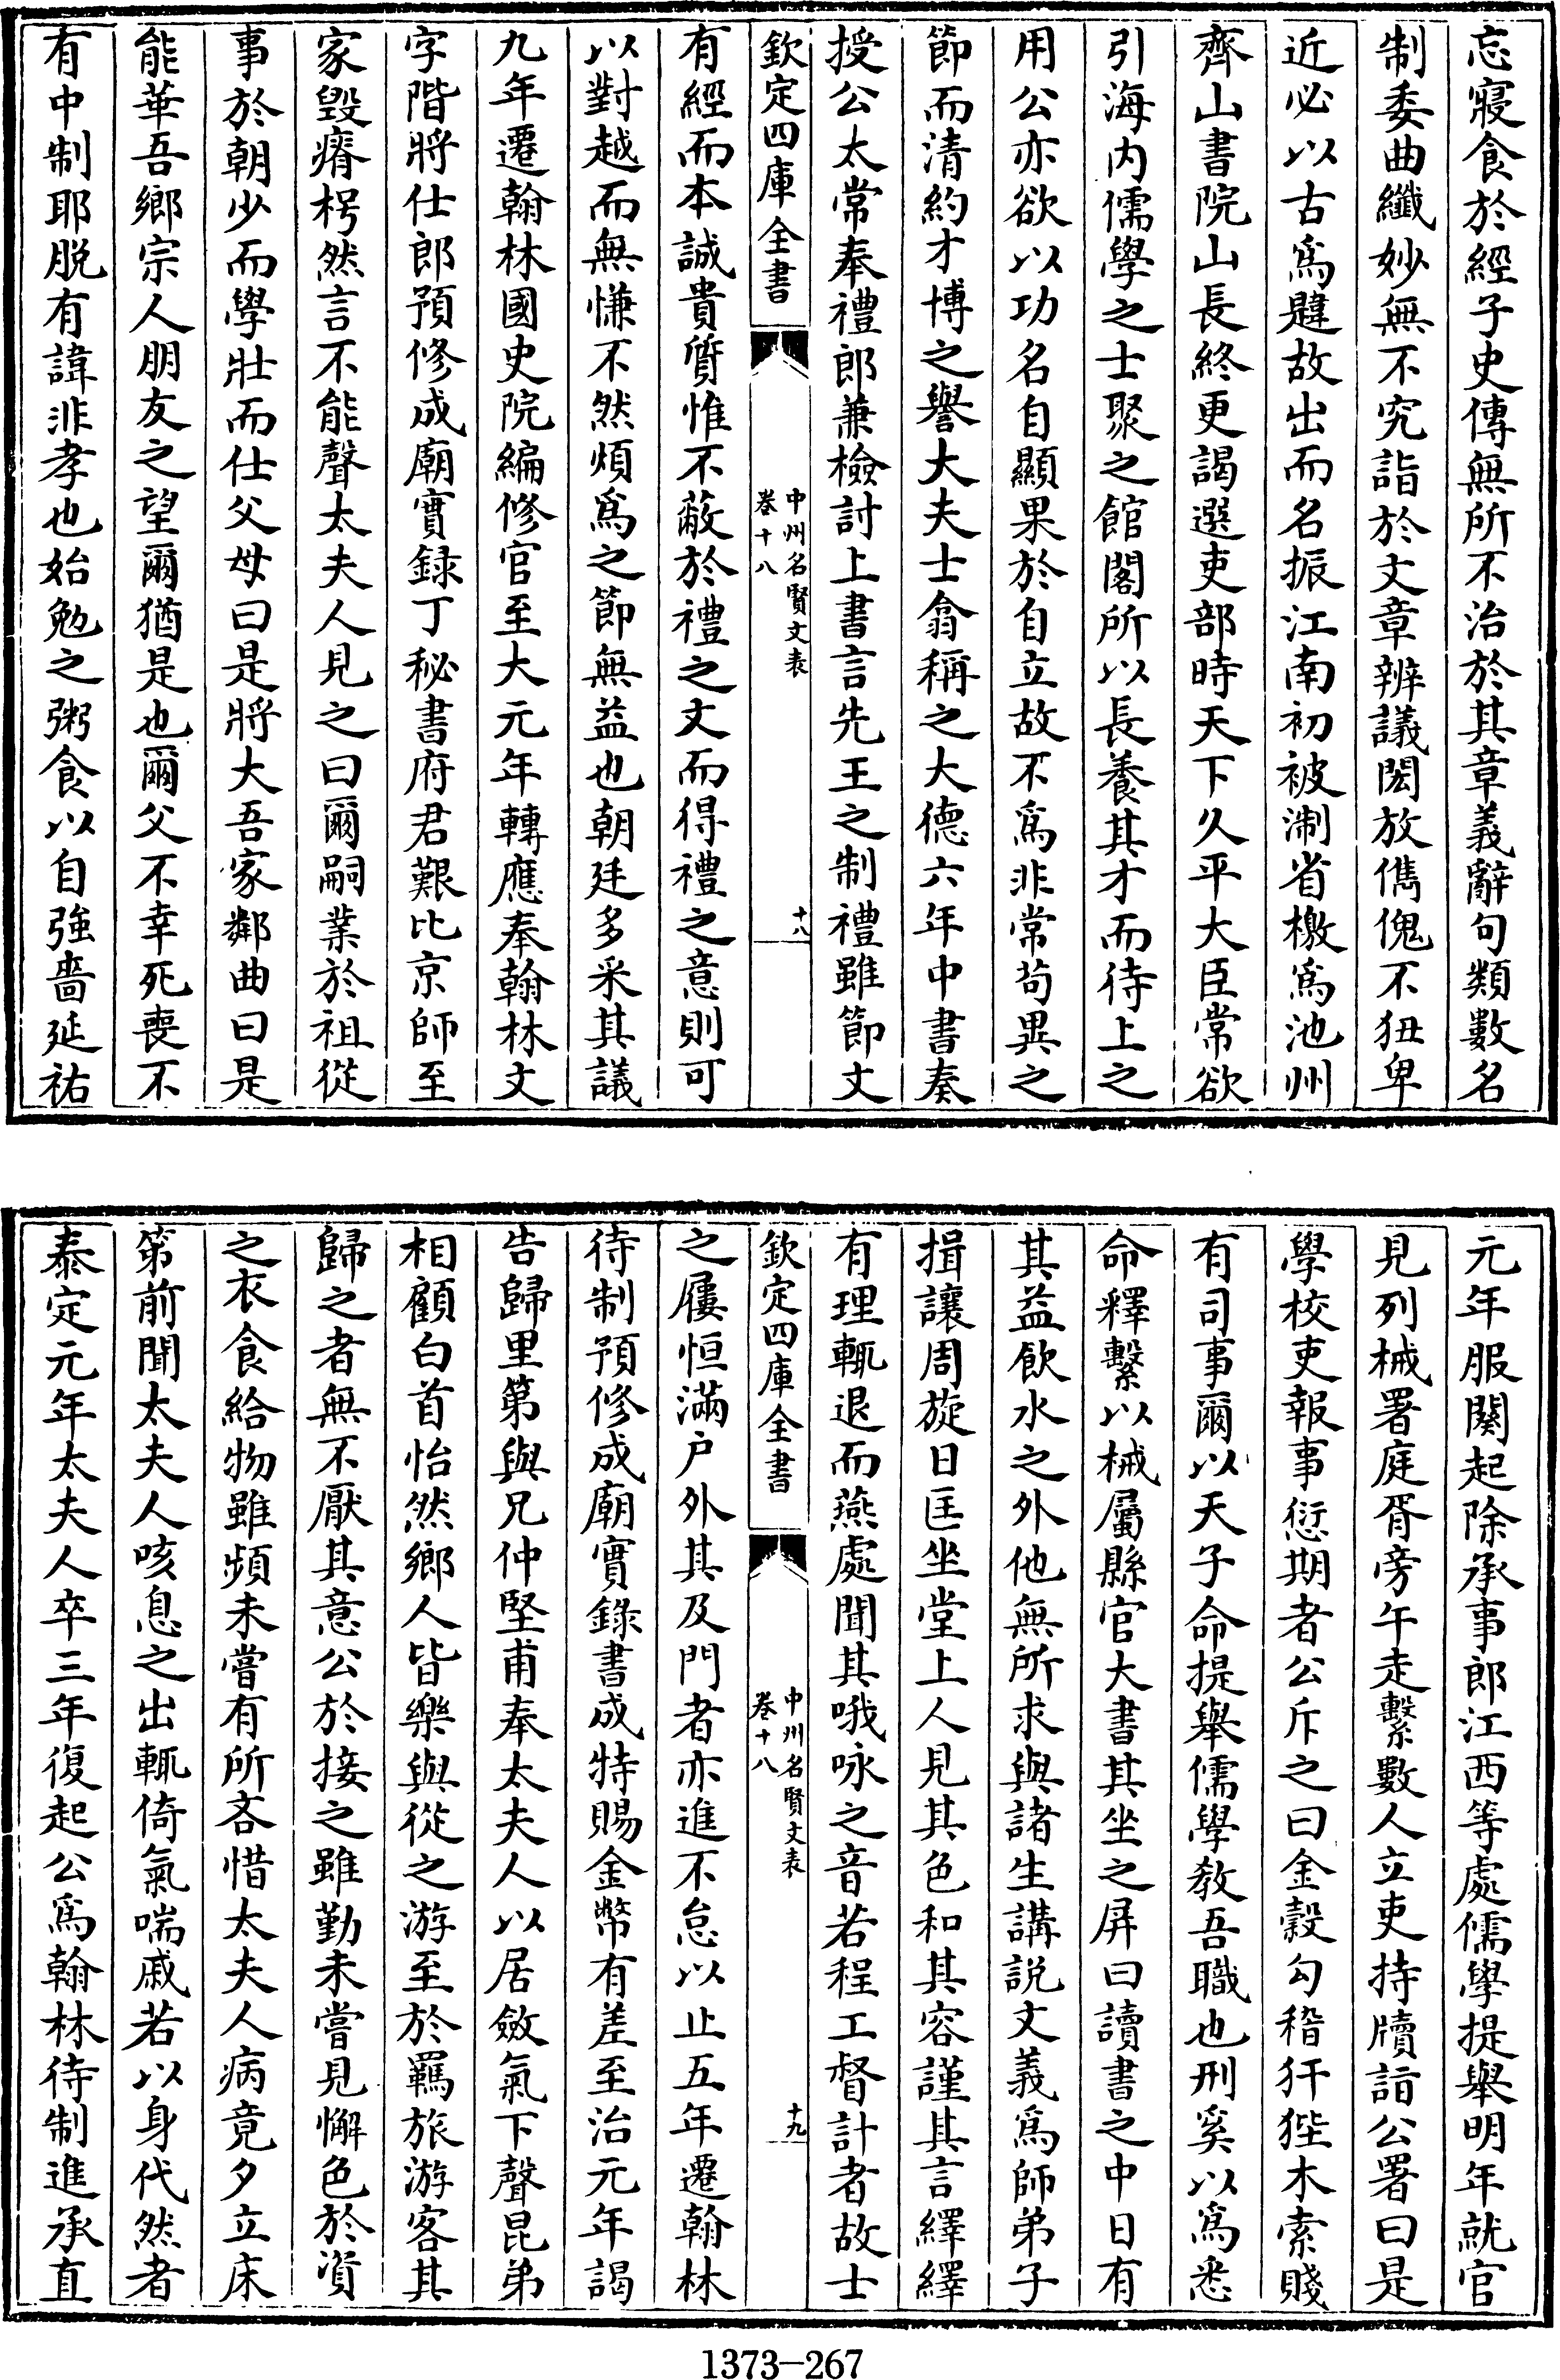 忘寢食於經子史傳無所不治於其章義辭句類數名
制委曲纖妙無不究詣於文章辨議閎放儁傀不狃卑
近必以古爲韙故出而名振江南初被淛省檄爲池州
齊山書院山長終更謁選吏部時天下久平大臣常欲
引海内儒學之士聚之館閣所以長養其才而待上之
用公亦欲以功名自顯果於自立故不爲非常苟異之
節而清約才博之譽大夫士翕稱之大德六年中書奏
授公太常奉禮郎兼檢討上書言先王之制禮雖節文
欽定四庫全書
中州名賢文表
卷十八
十八
有經而本誠貴質惟不蔽於禮之文而得禮之意則可
以對越而無慊不然煩爲之節無益也朝廷多采其議
九年遷翰林國史院編修官至大元年轉應奉翰林文
字階將仕郎預修成廟實録丁秘書府君艱比京師至
家毀瘠枵然言不能聲太夫人見之曰爾嗣業於祖從
事於朝少而學壯而仕父母曰是將大吾家鄰曲曰是
能華吾鄉宗人朋友之望爾猶是也爾父不幸死喪不
有中制耶脱有諱非孝也始勉之粥食以自強嗇延祐
元年服闋起除承事郎江西等處儒學提舉明年就官
見列械署庭胥旁午走繫數人立吏持牘詣公署曰是
學校吏報事愆期者公斥之曰金穀勾稽犴狴木索賤
有司事爾以天子命提舉儒學教吾職也刑奚以爲悉
命釋繫以械屬縣官大書其坐之屏曰讀書之中日有
其益飲水之外他無所求與諸生講説文義爲師弟子
揖讓周旋日匡坐堂上人見其色和其容謹其言繹繹
有理輒退而燕處聞其哦咏之音若程工督計者故士
欽定四庫全書
中州名賢文表
卷十八
十九
之屨恒滿户外其及門者亦進不怠以止五年遷翰林
待制預修成廟實錄書成特賜金幣有差至治元年謁
告歸里第與兄仲堅甫奉太夫人以居斂氣下聲昆弟
相顧白首怡然鄉人皆樂與從之游至於羈旅游客其
歸之者無不厭其意公於接之雖勤未嘗見懈色於資
之衣食給物雖頻未嘗有所吝惜太夫人病竟夕立床
第前聞太夫人咳息之出輒倚氣喘戚若以身代然者
泰定元年太夫人卒三年復起公爲翰林待制進承直
1373-267